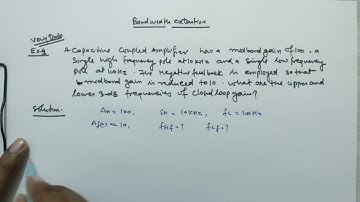 Bandwidth extention
Very Imp
Ex4 A Capacitive Coupled Amplifier has a midband gain of 100. a
Single high frequency pole at 10 kHz and a single low frequency
Pole at 110 Hz. is employed so that
midband gain is reduced to 10. what are the upper and
lower 3-dB frequencies of closed loop gain?
Solution: Am = 100, = 10 kHz, fL =
= 10, fHf = ? fLf = ?